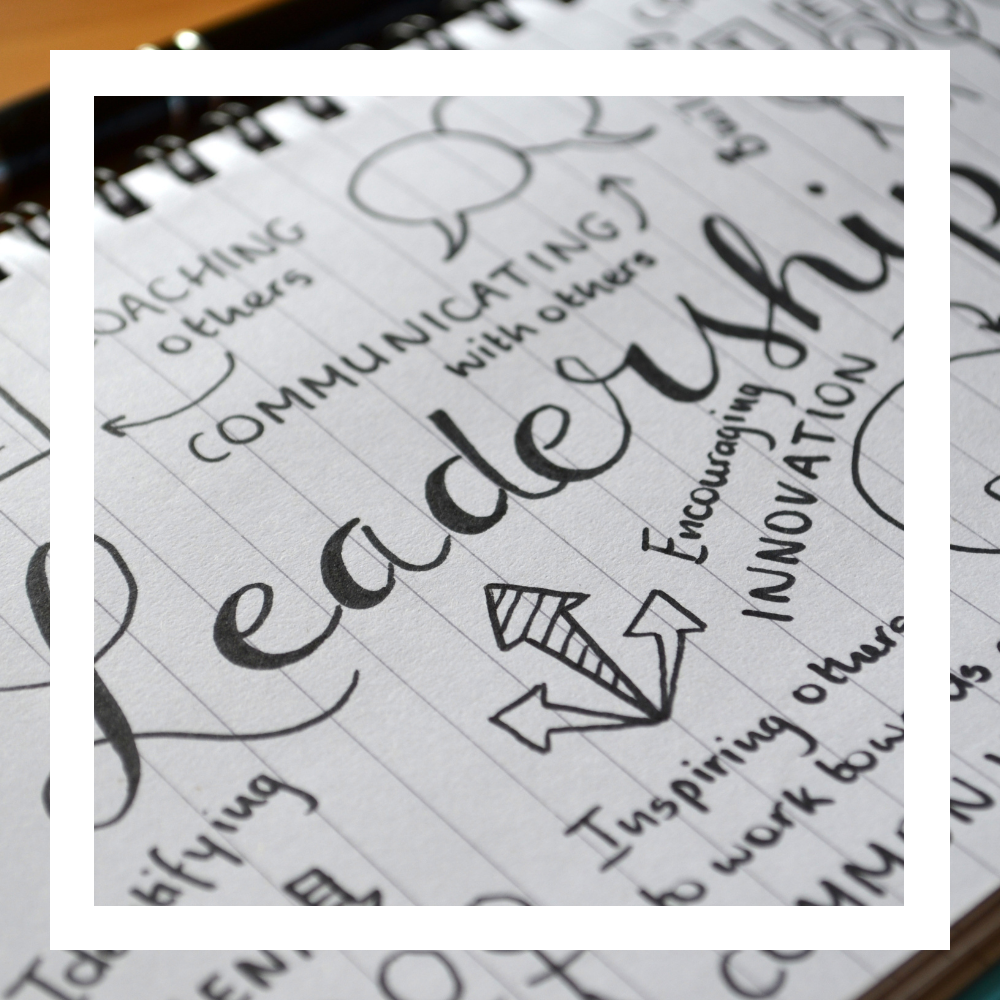 COACHING
others
COMMUNICATING
with others
Leadership
Encouraging
INNOVATION
Inspiring others
to work towards
COMMON
Identifying